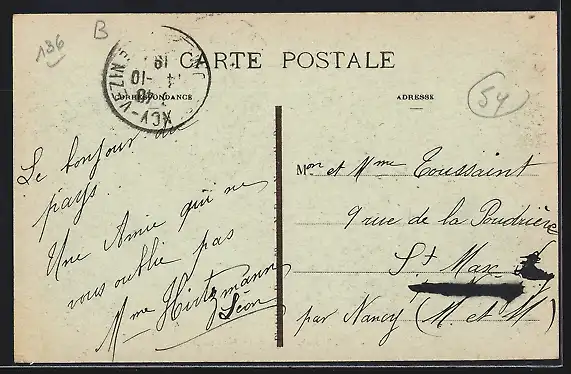 136
B
CARTE POSTALE
CORRESPONDANCE
ADRESSE
54
Le bonjour du
pays.
Une Amie qui ne
vous oublie pas
Mme Hirtzmann
Léon
Mon et Mme Toussaint
9 rue de la Poudrière
St Max
par Nancy (M. et M)